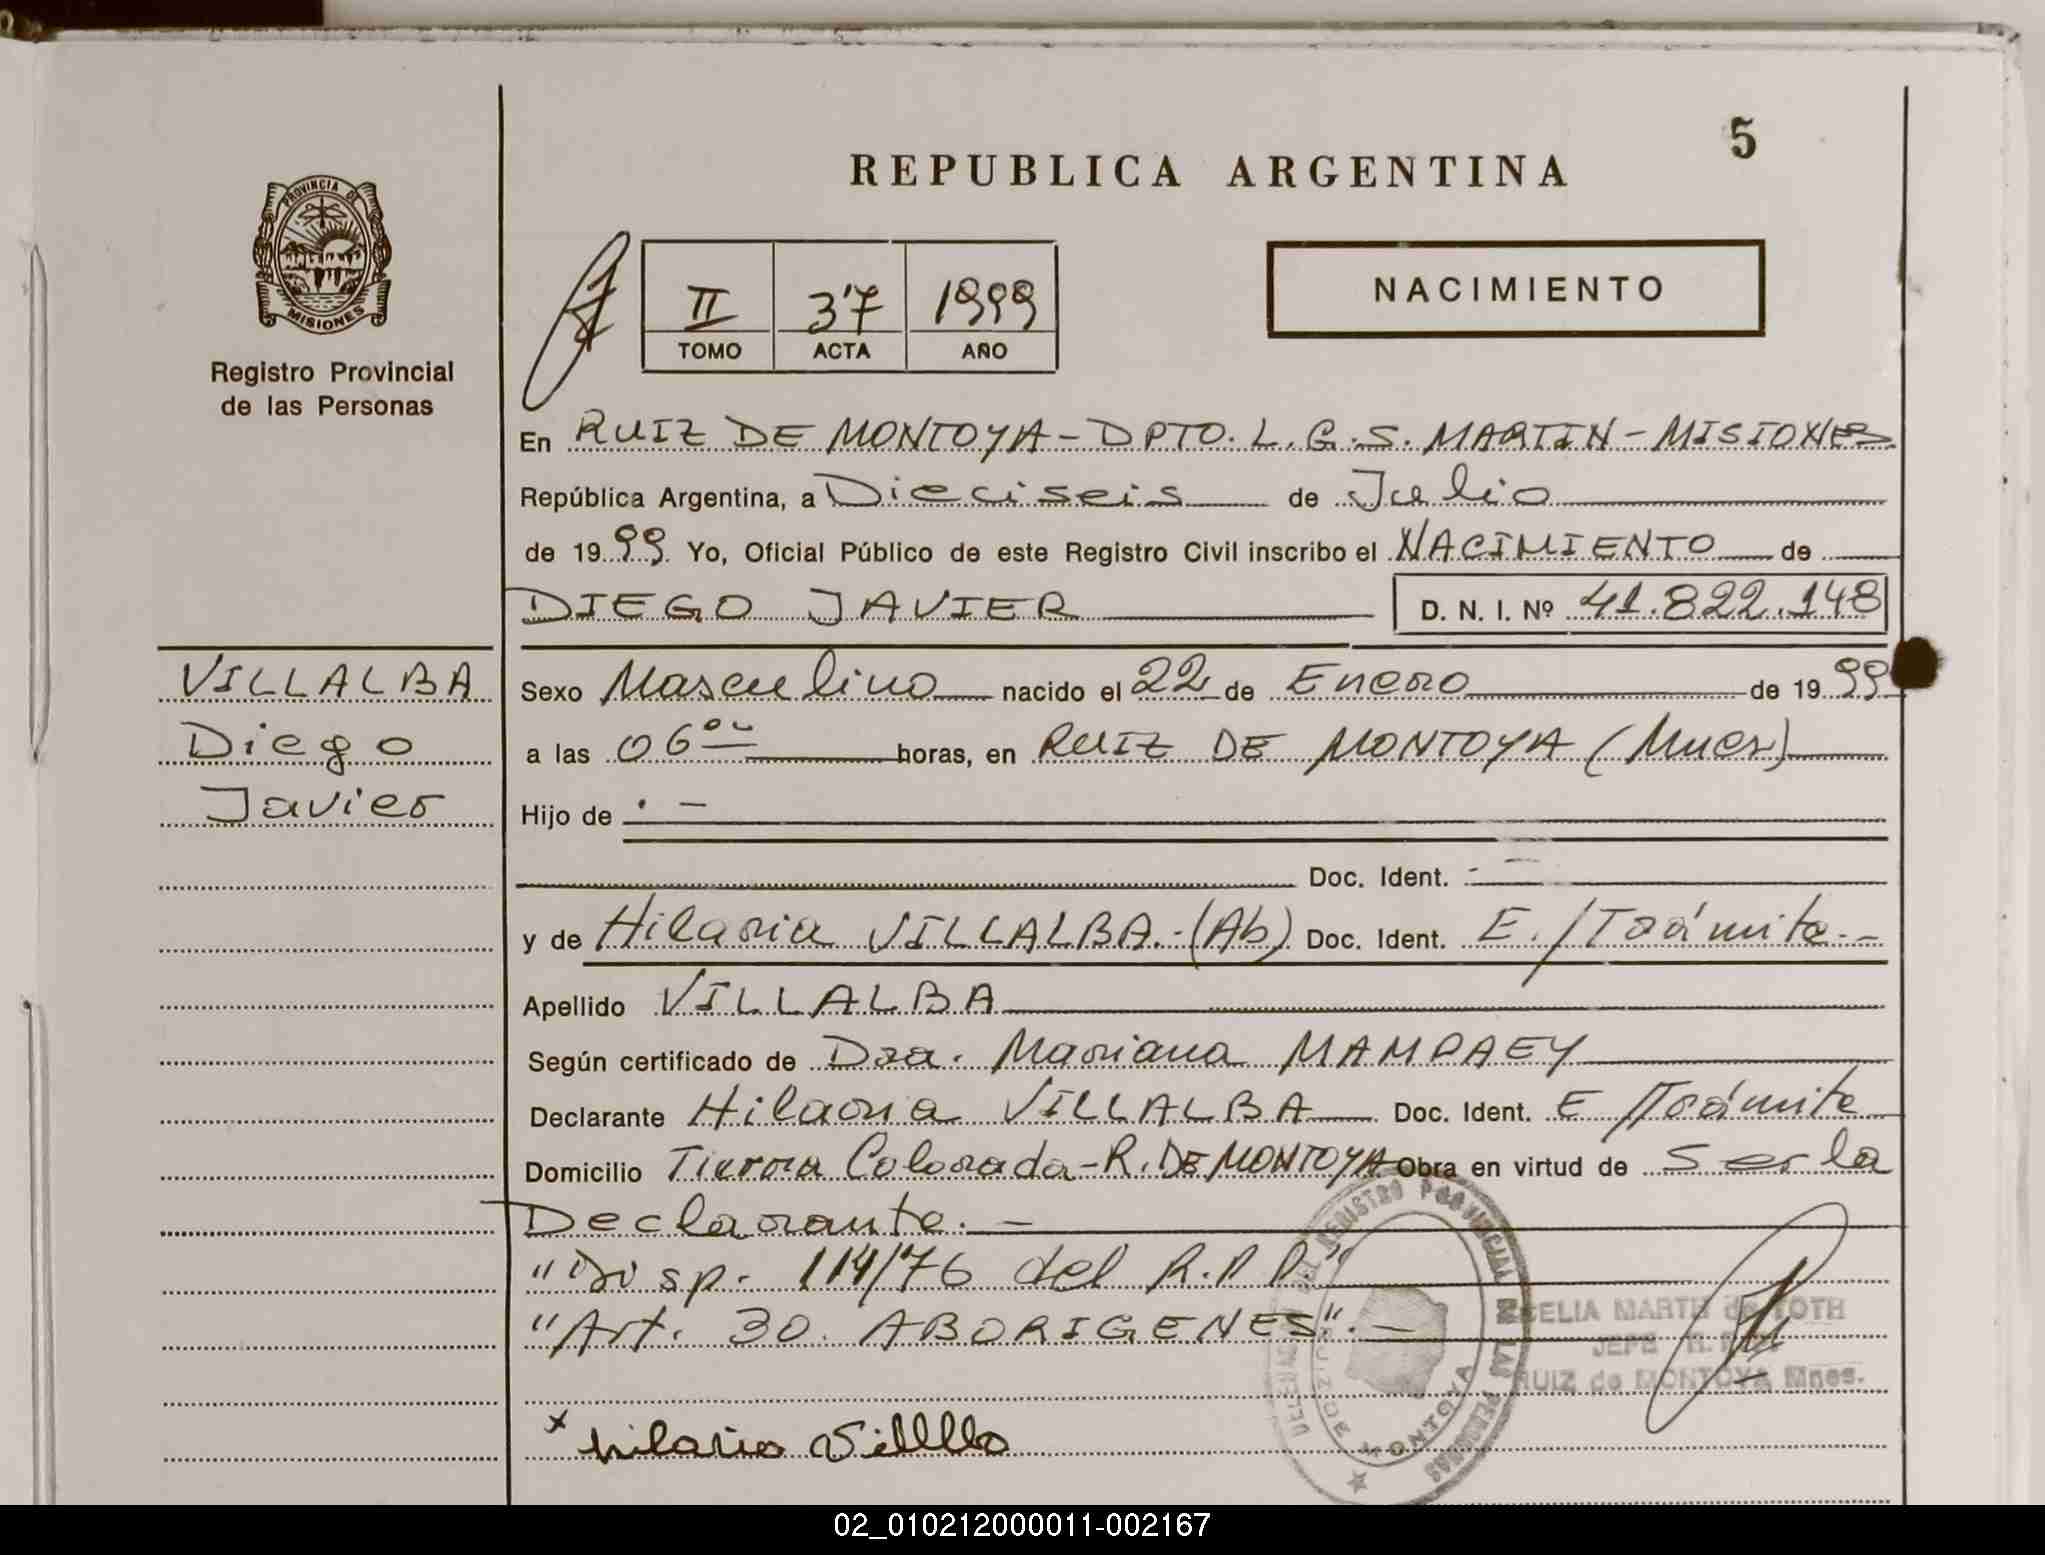 5
REPUBLICA ARGENTINA
PROVINCIA DE
MISIONES
Registro Provincial
de las Personas
II 37 1999
TOMO ACTA AÑO
NACIMIENTO
En RUIZ DE MONTOYA - DPTO. L. G. S. MARTIN - MISIONES
República Argentina, a Dieciseis de Julio
de 1999 Yo, Oficial Público de este Registro Civil inscribo el NACIMIENTO de
DIEGO JAVIER D. N. I. Nº 41.822.148
VILLALBA
Diego
Javier
Sexo Masculino nacido el 22 de Enero de 1999
a las 06 horas, en RUIZ DE MONTOYA (Mnes)
Hijo de . -
Doc. Ident. - -
y de Hilaria VILLALBA.-(Ab) Doc. Ident. E./Trámite.-
Apellido VILLALBA
Según certificado de Dra. Mariana MAMPAEY
Declarante Hilaria VILLALBA Doc. Ident. E/Trámite
Domicilio Tierra Colorada - R. DE MONTOYA Obra en virtud de Ser la
Declarante. -
"Disp. 114/76 del R.P.P."
"Art. 30 ABORIGENES". -
DEL REGISTRO PROVINCIAL DE LAS PERSONAS
RUIZ DE MONTOYA
CELIA MARTH de TOTH
JEFE R.P.P.
RUIZ de MONTOYA Mnes.
x hilario
02_010212000011-002167